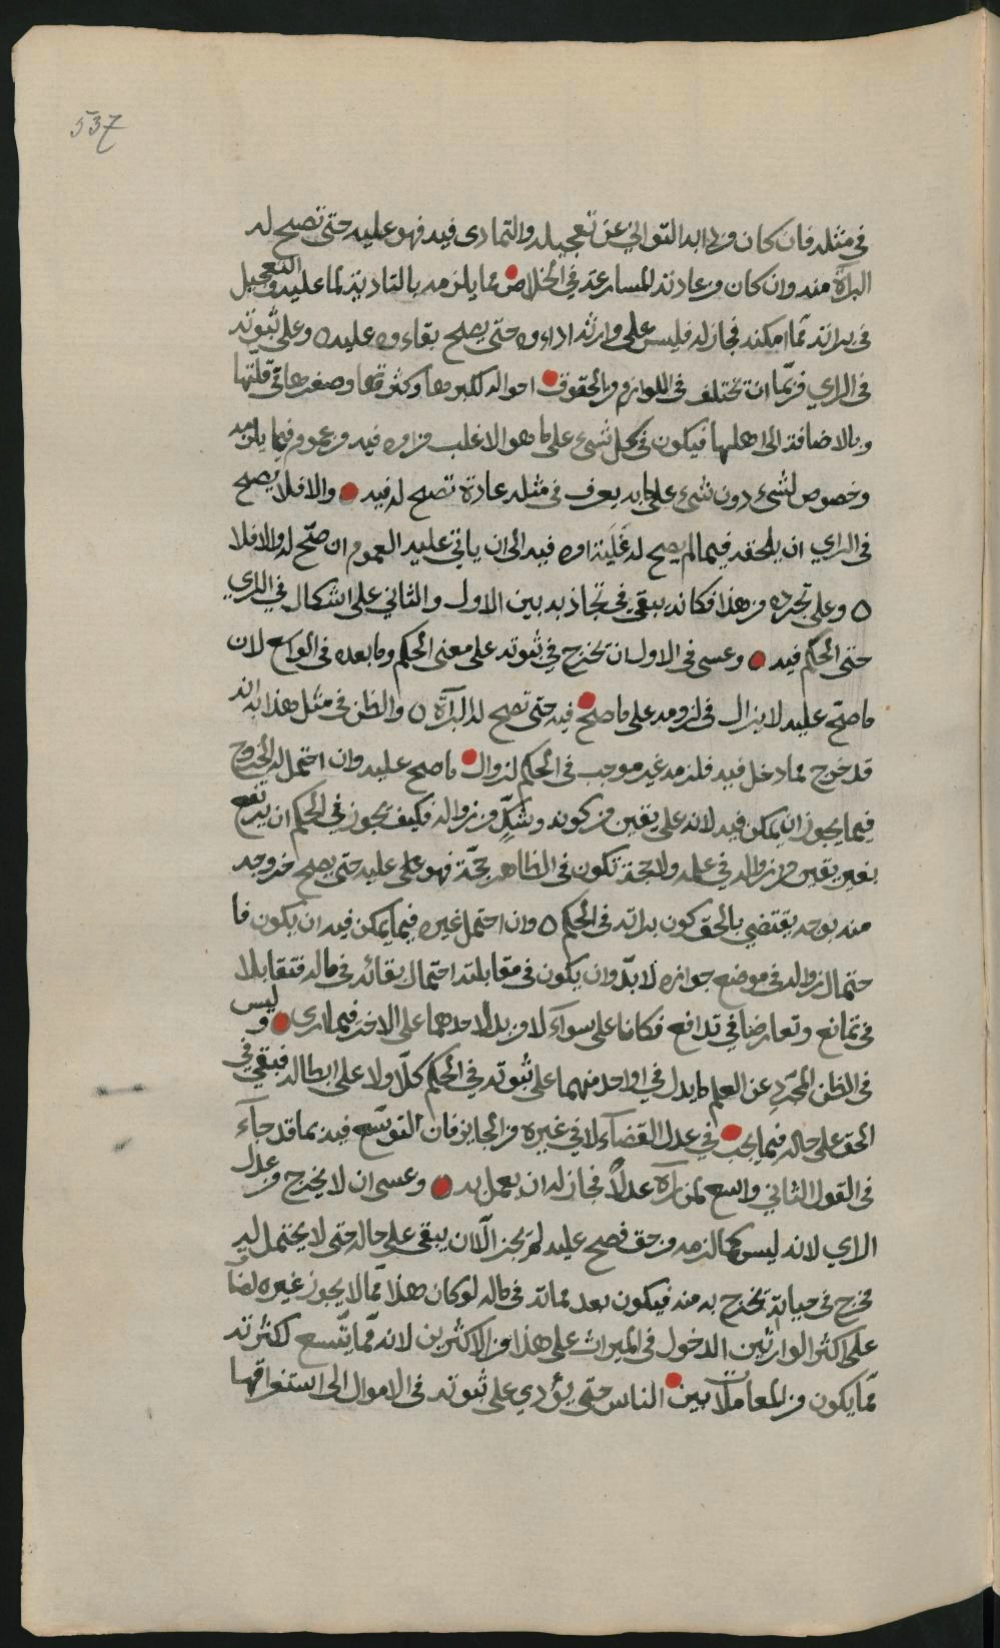 537
في مثله فان كان من دابه التواني عن تعجيله والتمادى فيه فهو عليه حتى تصح له
البرآة منه وان كان من عادته المسارعة في الخلاص مما يلزمه بالتادية لما عليه والتعجيل
في برائته مما امكنه فجاز له فليس على وارثه اداءوه حتى يصح بقاءوه عليه وعلى ثبوته
في الراي فربما ان تختلف في اللوازم من الحقوق احواله لكبرها وكثرتها وصغرها وقلتها
وبالاضافة الى اهلها فيكون في كل شيء على ما هو الاغلب من امره فيه من عموم فيما يلزمه
وخصوص لشيء دون شيء على ما به يعرف في مثله عادة تصح له فيه والا فلا يصح
في الراي ان يلحقه فيما لم يصح له غلبة امره فيه الى ان ياتي عليه العموم ان صح له والا فلا
٥ وعلى تجرده من هذا فكانه يبقى في تجاذب بين الاول والثاني على اشكال في الراي
حتى الحكم فيه وعسى في الاول ان يخرج في ثبوته على معنى الحكم وما بعده في الواسع لان
ما صح عليه لا يزال في لزومه على ما صح فيه حتى تصح له البرآة ٥ والظن في مثل هذا به انه
قد خرج مما دخل فيه فلزمه غير موجب في الحكم لزوال ما صح عليه وان احتمل له الخروج
فيما يجوز ان يمكن فيه لانه على يقين من كونه وشكٍّ من زواله فكيف يجوز في الحكم ان يرتفع
بغير يقين من زواله في علمه ولا حجة تكون في الظاهر حجّة فهو على عليه حتى يصح خروجه
منه بوجه يقتضي بالحق كون براته في الحكم ٥ وان احتمل غيره فيما يمكن فيه ان يكون فا
حتمال زواله في موضع جوازه لا بدّ وان يكون في مقابلته احتمال بقائه في ماله فتقابلا
في تمانع وتعارضا في تدافع فكانا على سوآء لا مزيد لاحدهما على الاخر فيما ارى وليس
في الظن المجرّد عن العلم ما يدل في واحد منهما على ثبوته في الحكم كلّا ولا على ابطاله فبقي في
الحق على حاله فيما يجب في عدل القضآء لا في غيره من الجايز فان التوسّع فيه بما قد جآء
في القول الثاني واسع لمن رآه عدلاً فجاز له ان يعمل به وعسى ان لا يخرج من عدل
الراي لانه ليس كما لزمه من حق فصح عليه لم يجز الّا ان يبقى على حاله حتى لا يحتمل له
مخرج في حياته يخرج به منه فيكون بعد مماته في ماله لو كان هذا ممّا لا يجوز غيره لضا
على اكثر الوارثين الدخول في الميراث على هذا من الاكثرين لانه مما يتّسع لكثرته
ممّا يكون من المعاملات بين الناس حتى يؤدي على ثبوته في الاموال الى استغراقها